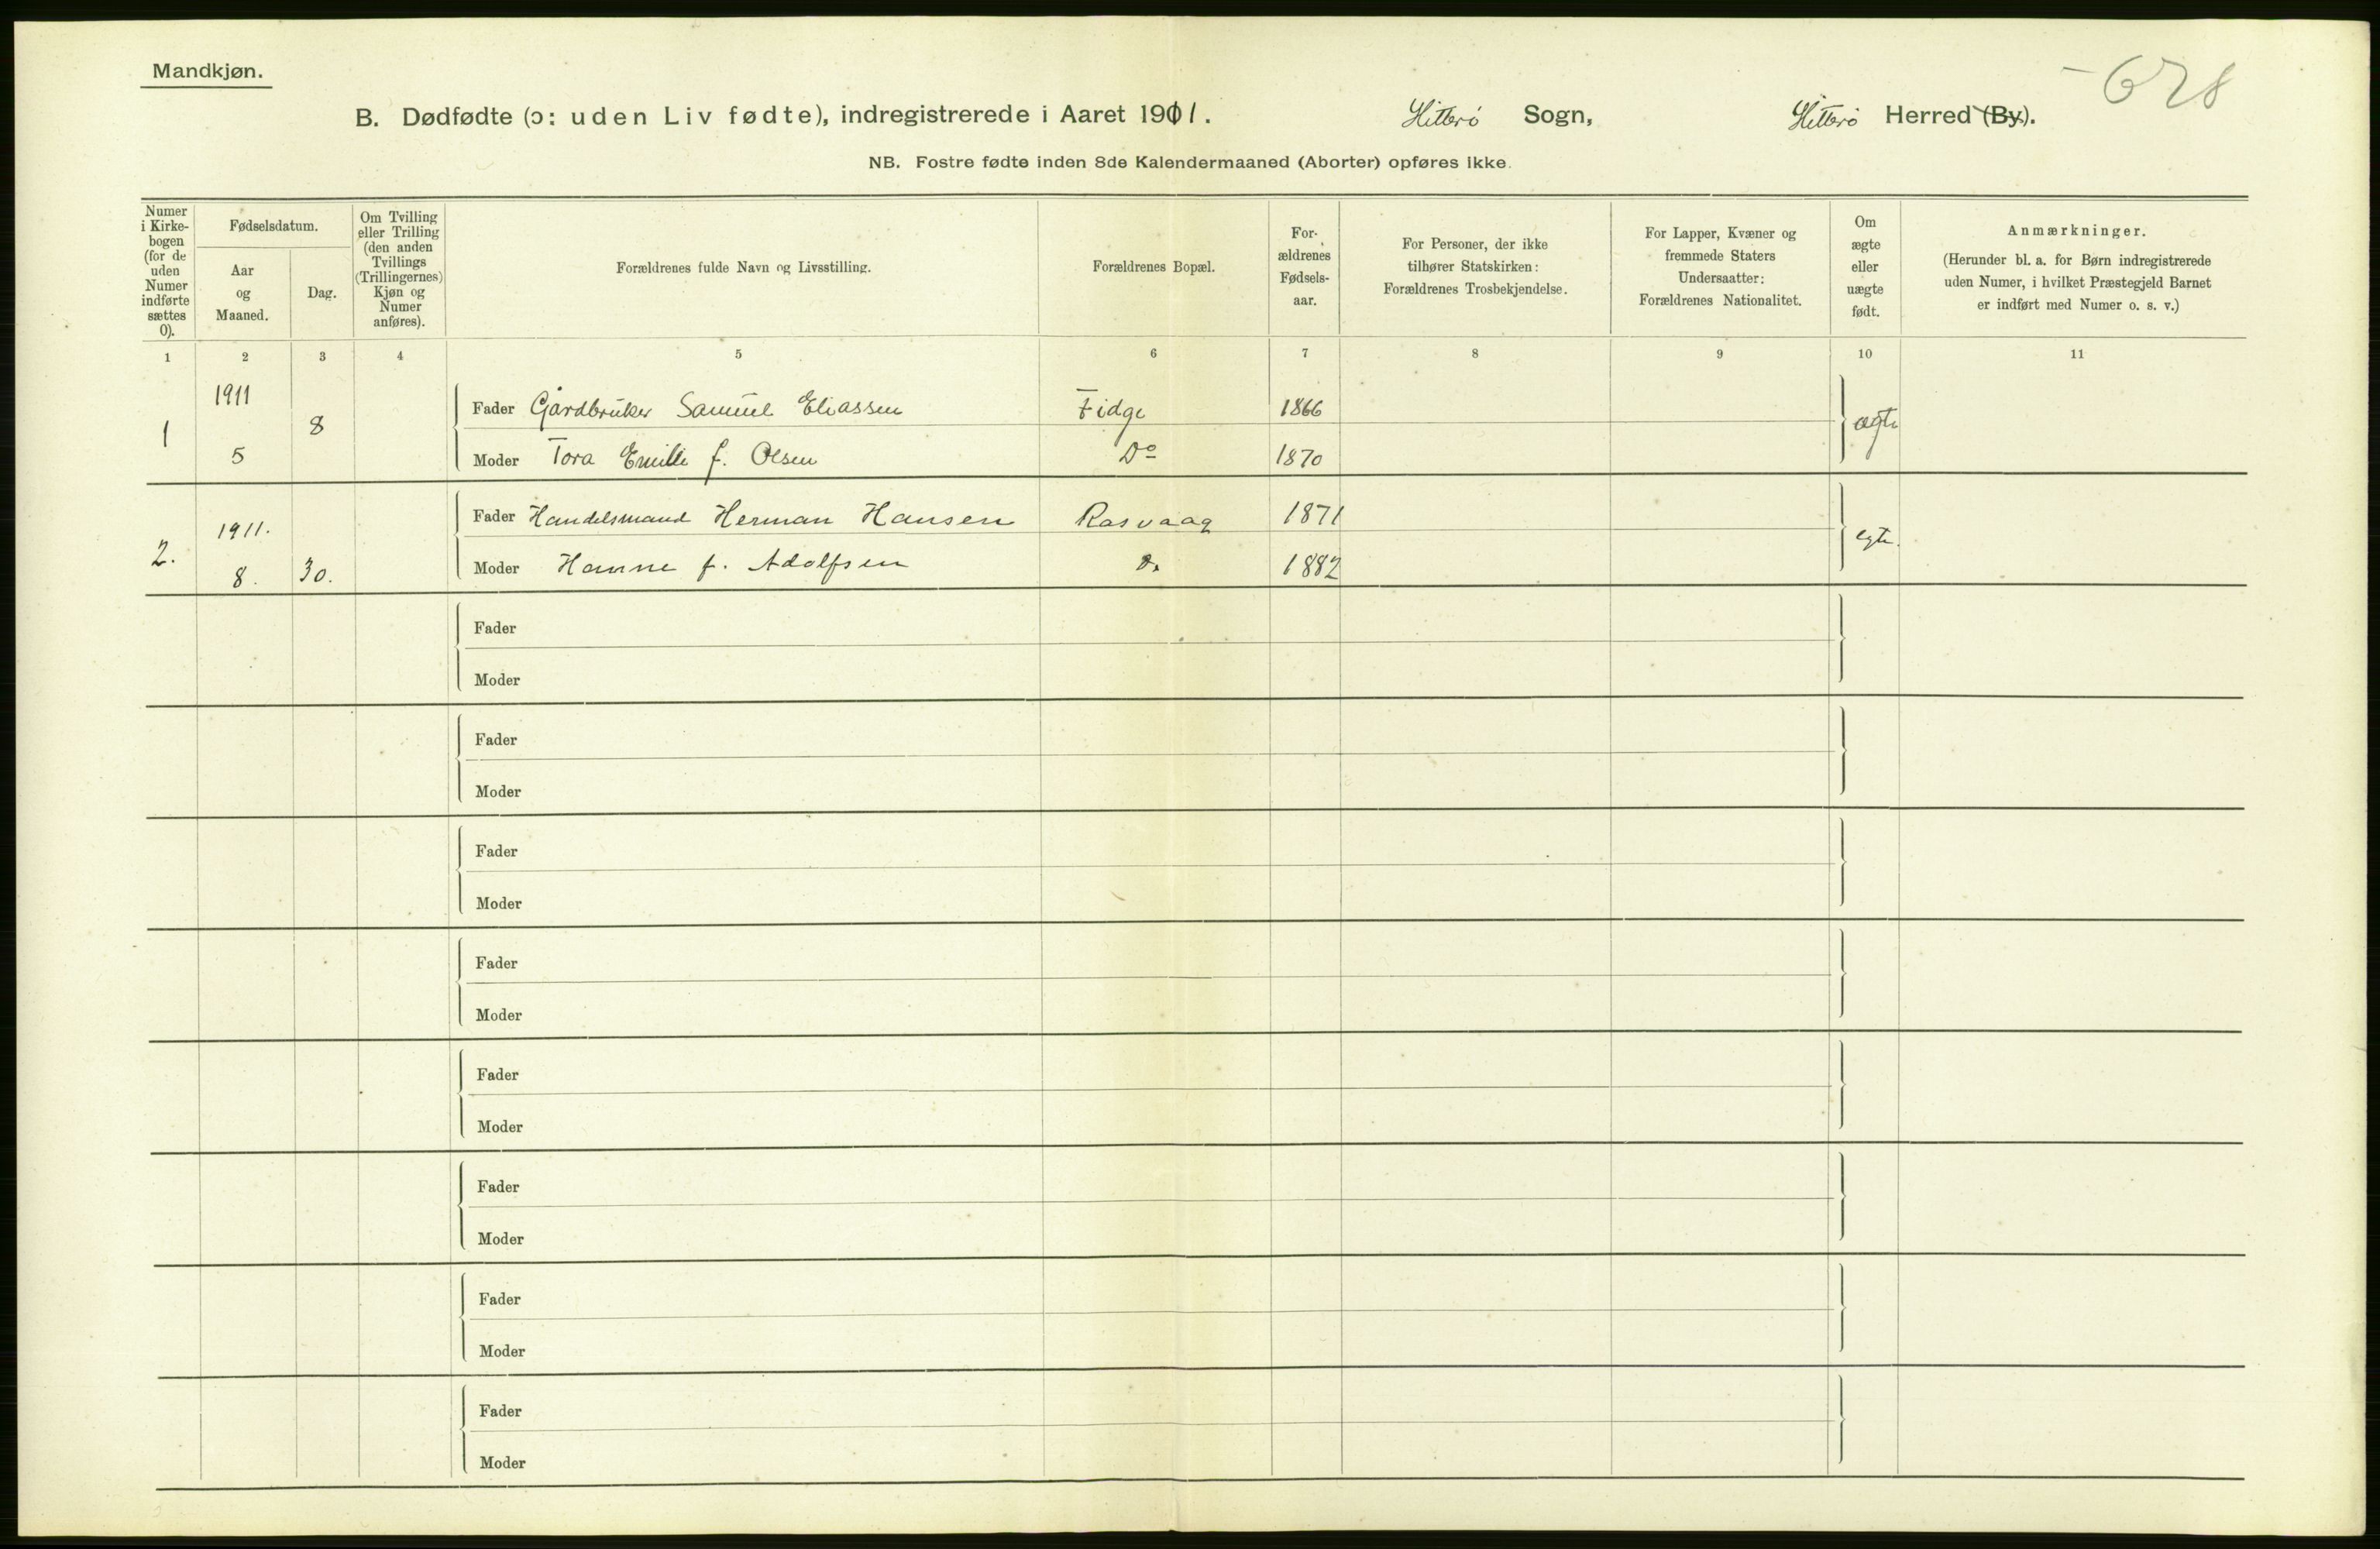 Mandkjøn.
- 628
B. Dødfødte (ɔ: uden Liv fødte), indregistrerede i Aaret 1911. Hitterö Sogn, Hitterö Herred (By).
NB. Fostre fødte inden 8de Kalendermaaned (Aborter) opføres ikke.
Numer i Kirke-bogen (for de uden Numer indførte sættes 0).
Fødselsdatum.
Aar og Maaned.
Dag.
Om Tvilling eller Trilling (den anden Tvillings (Trillingernes) Kjøn og Numer anføres).
Forældrenes fulde Navn og Livsstilling.
Forældrenes Bopæl.
For-ældrenes Fødsels-aar.
For Personer, der ikke tilhører Statskirken: Forældrenes Trosbekjendelse.
For Lapper, Kvæner og fremmede Staters Undersaatter: Forældrenes Nationalitet.
Om ægte eller uægte født.
Anmærkninger.
(Herunder bl. a. for Børn indregistrerede uden Numer, i hvilket Præstegjeld Barnet er indført med Numer o. s. v.)
1 2 3 4 5 6 7 8 9 10 11
1 1911 5 8 Fader Gårdbruker Samuel Eliassen Fidge 1866 ægte
Moder Tora Emilie f. Olsen Do 1870
2. 1911. 8. 30. Fader Handelsmand Herman Hansen Rasvaag 1871 egte.
Moder Hanne f. Adolfsen Do 1882
Fader
Moder
Fader
Moder
Fader
Moder
Fader
Moder
Fader
Moder
Fader
Moder
Fader
Moder
Fader
Moder